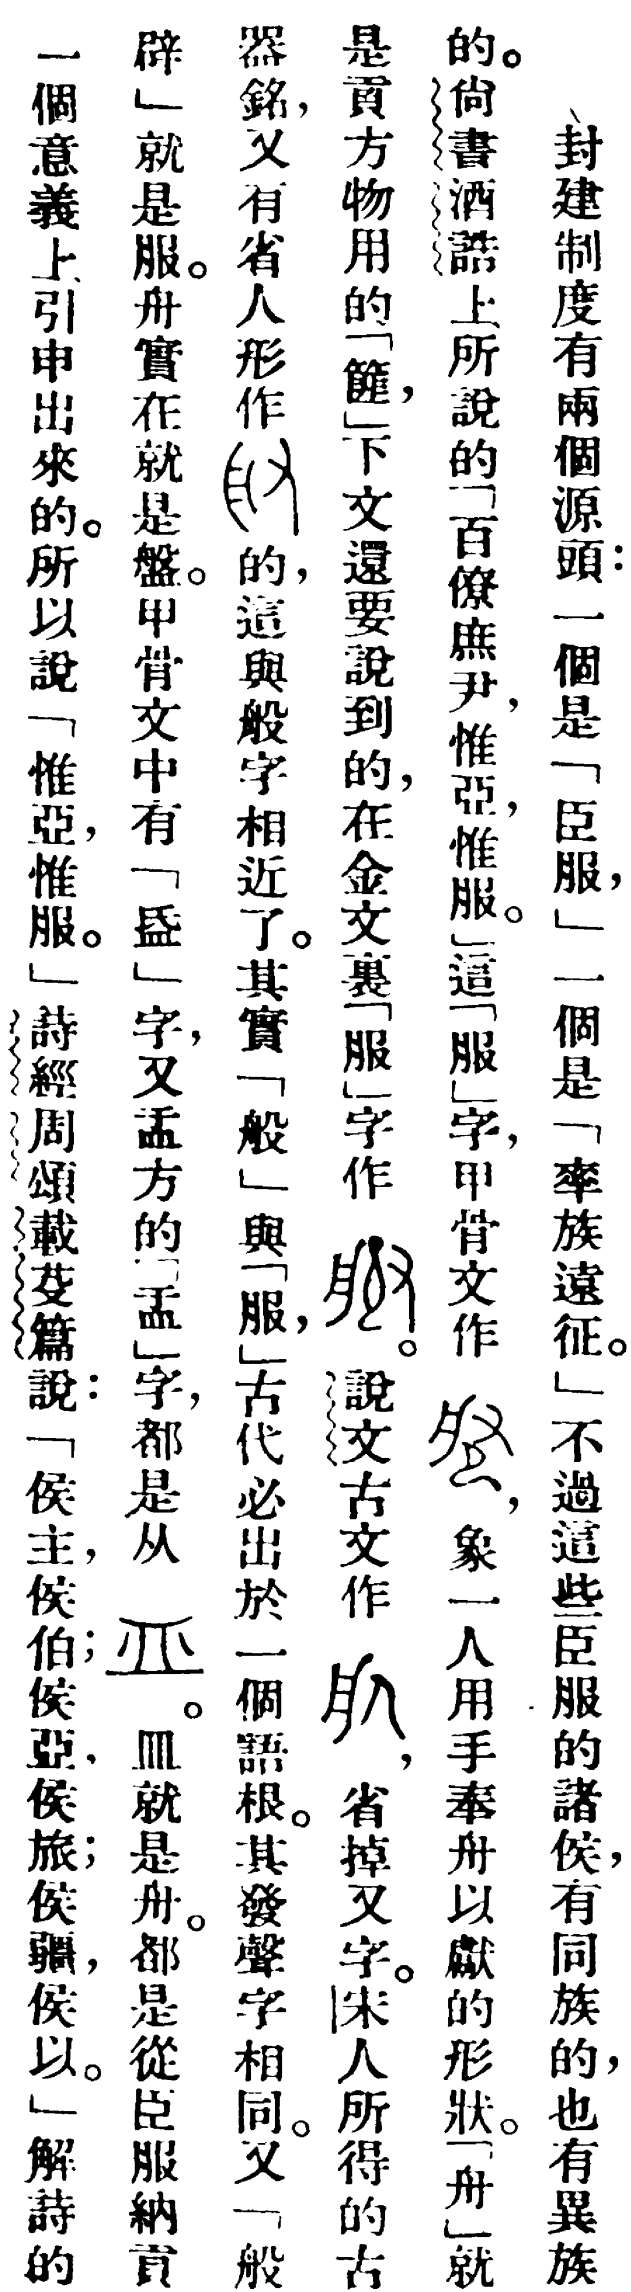 封建制度有兩個源頭：一個是「臣服，」一個是「率族遠征。」不過這些臣服的諸侯，有同族的，也有異族
的。尙書酒誥上所說的「百僚庶尹，惟亞，惟服。」這「服」字，甲骨文作，象一人用手奉舟以獻的形狀。「舟」就
是貢方物用的「籠，」下文還要說到的，在金文裏「服」字作。說文古文作，省掉又字。宋人所得的古
器銘，又有省人形作的，這與般字相近了。其實「般」與「服，」古代必出於一個語根。其發聲字相同。又「般
辟」就是服。舟實在就是盤。甲骨文中有「昷」字，又盂方的「盂」字，都是从。皿就是舟。都是從臣服納貢
一個意義上引申出來的。所以說「惟亞，惟服。」詩經周頌載芟篇說：「侯主，侯伯；侯亞，侯旅；侯彊，侯以。」解詩的